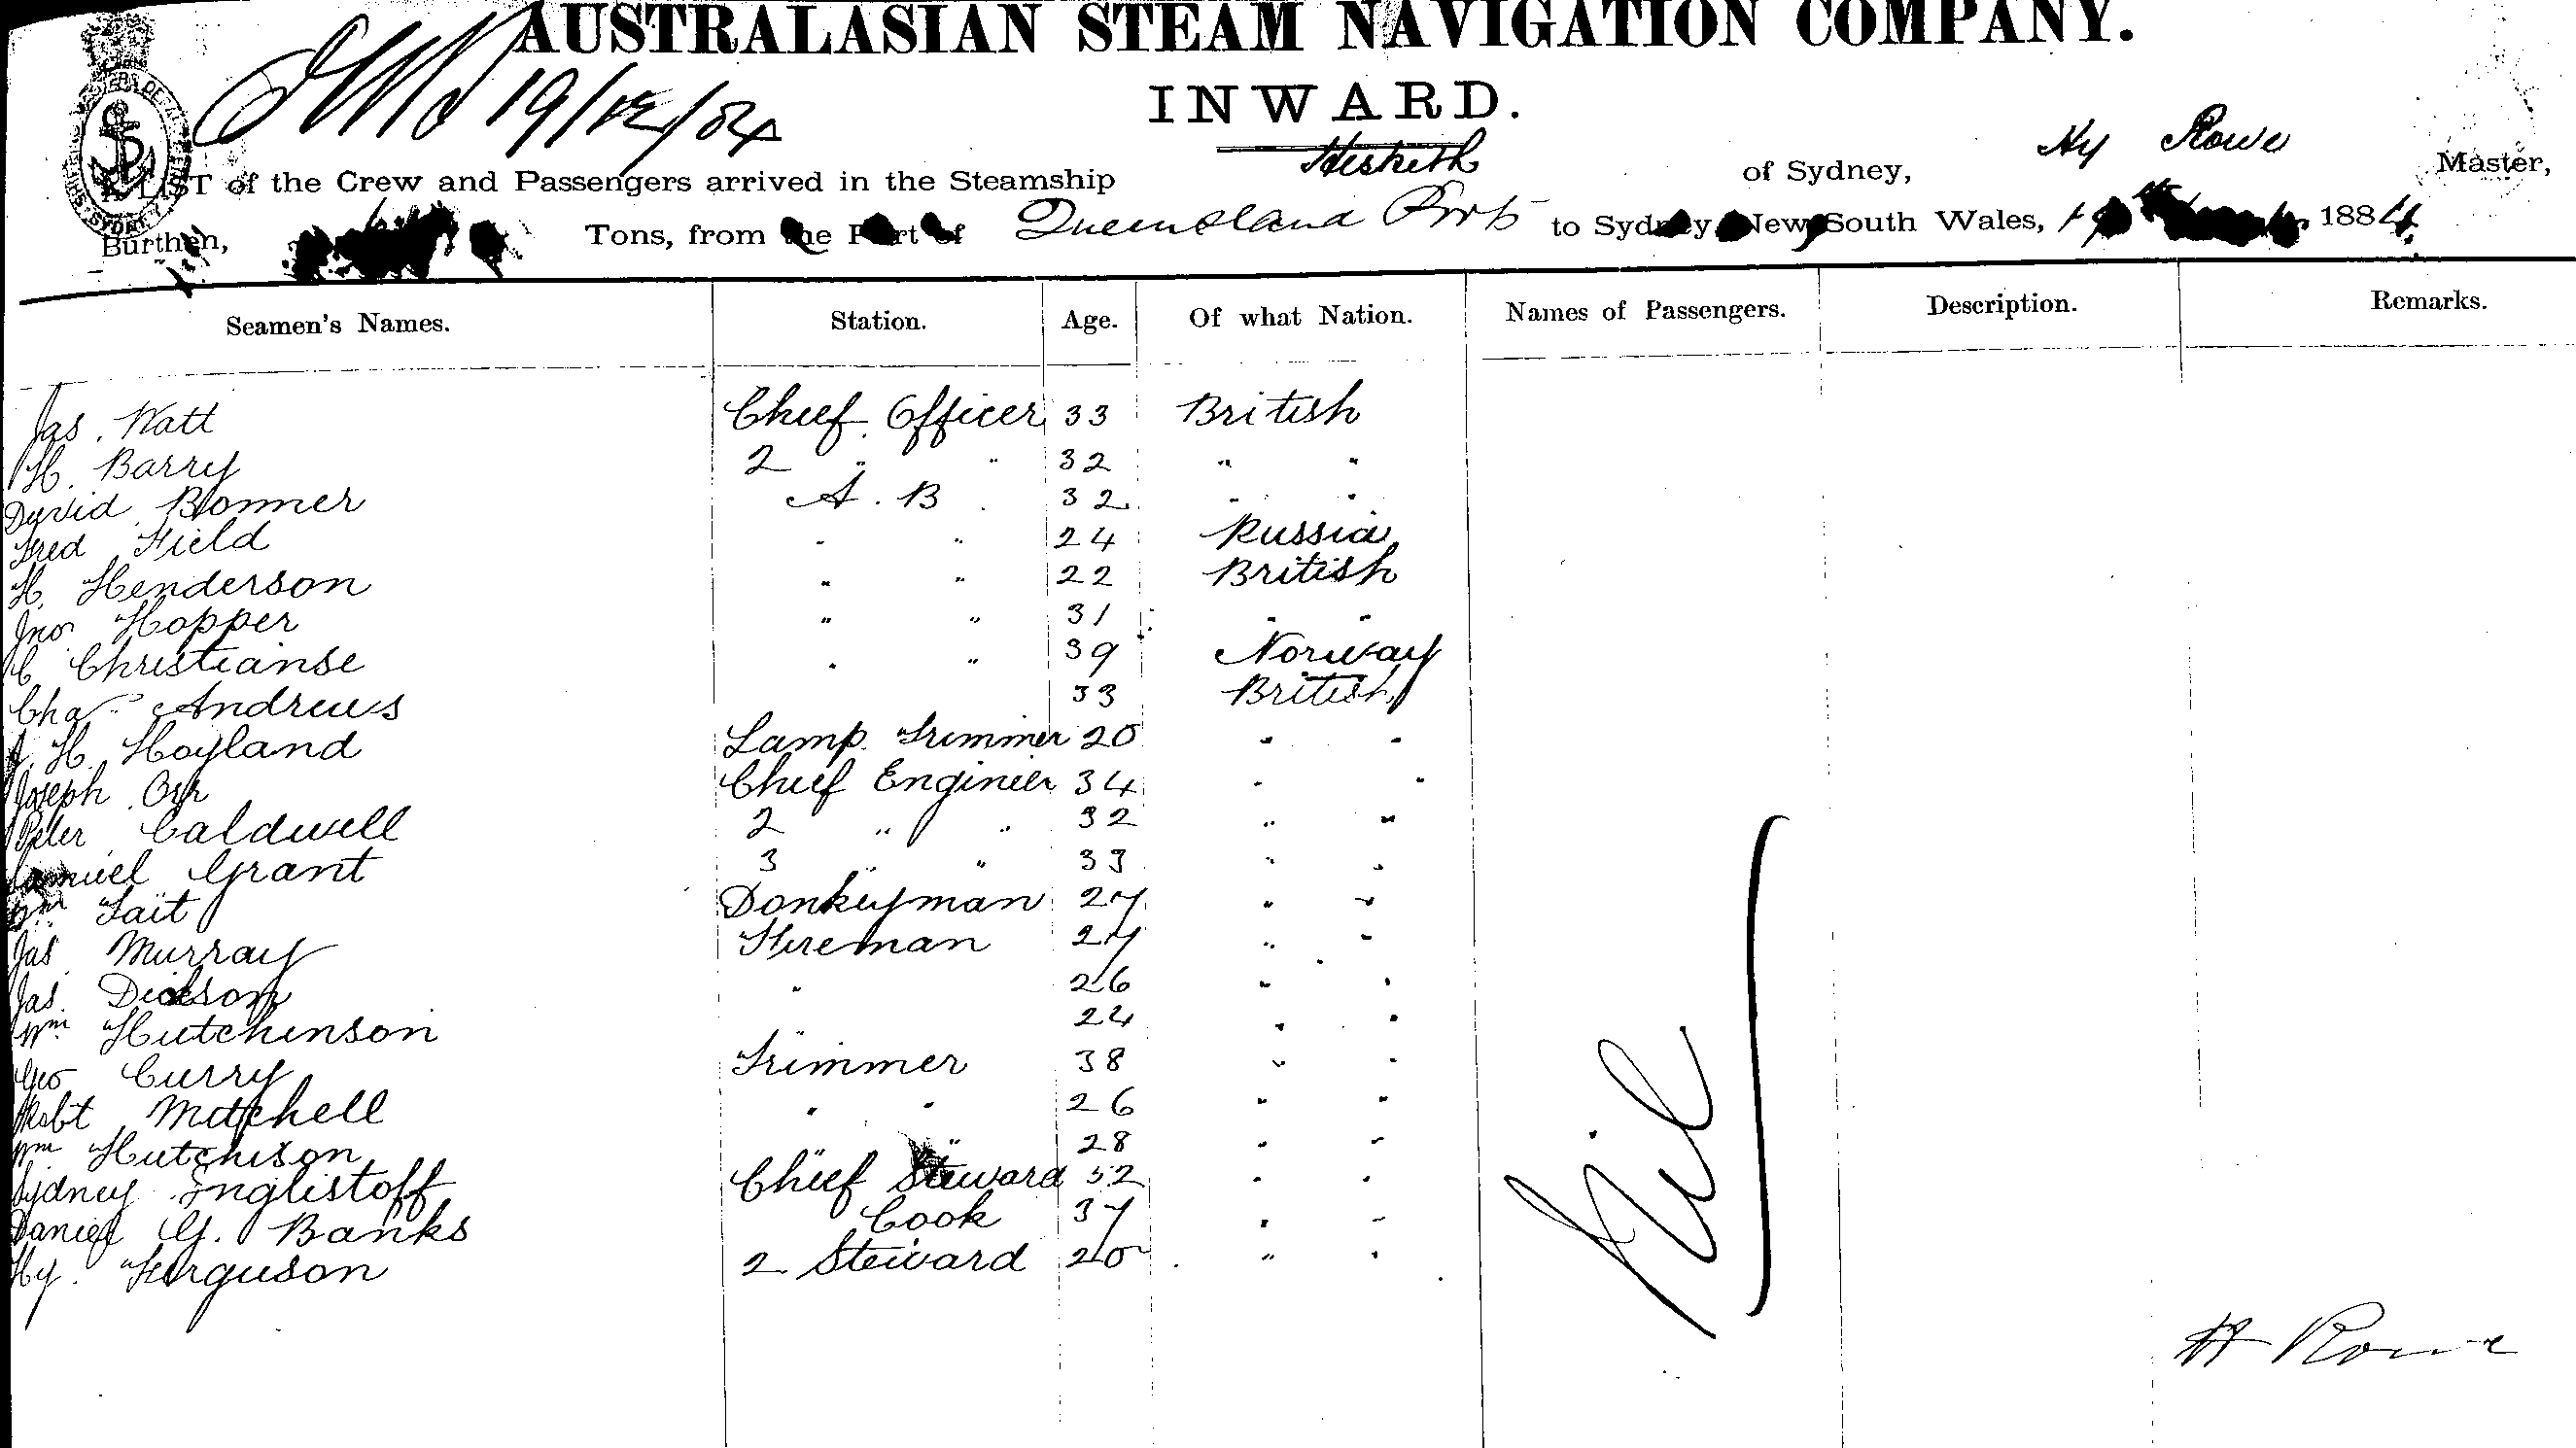 AUSTRALASIAN STEAM NAVIGATION COMPANY.
19/12/84
INWARD.
A LIST of the Crew and Passengers arrived in the Steamship Hesketh of Sydney, Hy Rowe Master,
Burthen, Tons, from the Port of Queensland Ports to Sydney, New South Wales, 1884
Seamen's Names. Station. Age. Of what Nation. Names of Passengers. Description. Remarks.
Jas. Watt Chief Officer 33 British
H. Barry 2 " " 32 " "
David Bonner A. B 32 " "
Fred Field " " 24 Russia
H. Henderson " " 22 British
Jno Hopper " " 31 " "
C Christianse " " 39 Norway
Chas Andrews 33 British
H. Hoyland Lamp Trimmer 20 " "
Joseph Orr Chief Engineer 34 " "
Peter Caldwell 2 " " 32 " "
Samuel Grant 3 " " 33 " "
Wm Tait Donkeyman 27 " "
Jas Murray Fireman 27 " "
Jas. Dickson " 26 " "
Wm Hutchinson " 24 " "
Geo Curry Trimmer 38 " "
Robt Mitchell " " 26 " "
Wm Hutchison " " 28 " "
Sydney Inglistoff Chief Steward 52 " "
Daniel G. Banks Cook 37 " "
Hy. Ferguson 2 Steward 20 " "
Nil
H Rowe